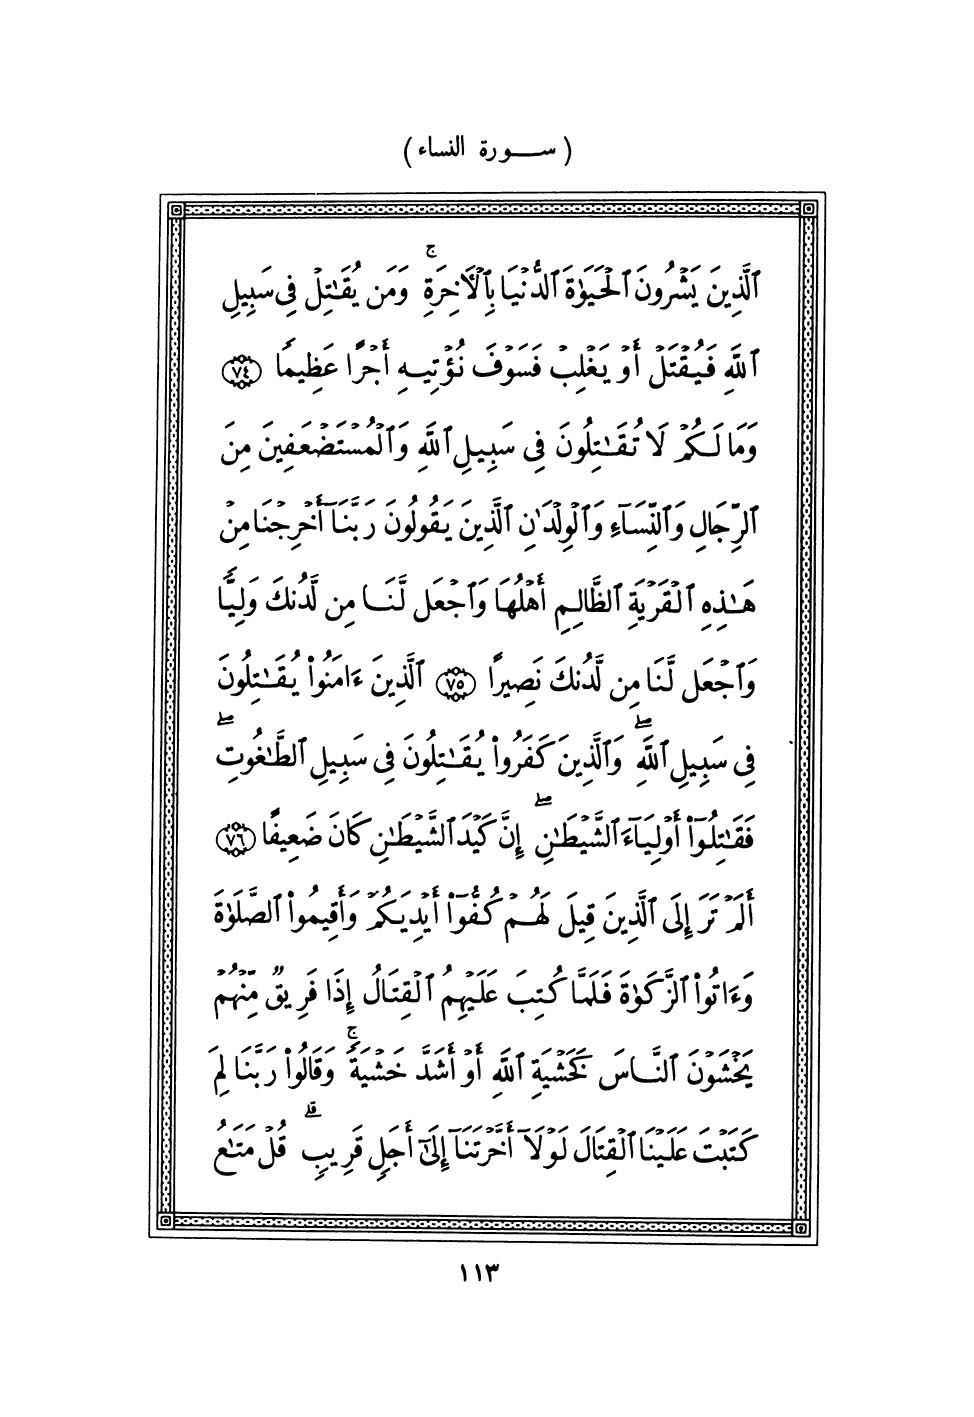 ( ســـورة النساء )
ٱلَّذِينَ يَشْرُونَ ٱلْحَيَوٰةَ ٱلدُّنْيَا بِٱلْأَخِرَةِ ۚ وَمَن يُقَـٰتِلْ فِى سَبِيلِ
ٱللَّهِ فَيُقْتَلْ أَوْ يَغْلِبْ فَسَوْفَ نُؤْتِيهِ أَجْرًا عَظِيمًا ﴿٧٤﴾
وَمَا لَكُمْ لَا تُقَـٰتِلُونَ فِى سَبِيلِ ٱللَّهِ وَٱلْمُسْتَضْعَفِينَ مِنَ
ٱلرِّجَالِ وَٱلنِّسَآءِ وَٱلْوِلْدَٰنِ ٱلَّذِينَ يَقُولُونَ رَبَّنَآ أَخْرِجْنَا مِنْ
هَـٰذِهِ ٱلْقَرْيَةِ ٱلظَّالِمِ أَهْلُهَا وَٱجْعَل لَّنَا مِن لَّدُنكَ وَلِيًّا
وَٱجْعَل لَّنَا مِن لَّدُنكَ نَصِيرًا ﴿٧٥﴾ ٱلَّذِينَ ءَامَنُوا۟ يُقَـٰتِلُونَ
فِى سَبِيلِ ٱللَّهِ ۖ وَٱلَّذِينَ كَفَرُوا۟ يُقَـٰتِلُونَ فِى سَبِيلِ ٱلطَّـٰغُوتِ ۖ
فَقَـٰتِلُوٓا۟ أَوْلِيَآءَ ٱلشَّيْطَـٰنِ ۖ إِنَّ كَيْدَ ٱلشَّيْطَـٰنِ كَانَ ضَعِيفًا ﴿٧٦﴾
أَلَمْ تَرَ إِلَى ٱلَّذِينَ قِيلَ لَهُمْ كُفُّوٓا۟ أَيْدِيَكُمْ وَأَقِيمُوا۟ ٱلصَّلَوٰةَ
وَءَاتُوا۟ ٱلزَّكَوٰةَ فَلَمَّا كُتِبَ عَلَيْهِمُ ٱلْقِتَالُ إِذَا فَرِيقٌ مِّنْهُمْ
يَخْشَوْنَ ٱلنَّاسَ كَخَشْيَةِ ٱللَّهِ أَوْ أَشَدَّ خَشْيَةً ۚ وَقَالُوا۟ رَبَّنَا لِمَ
كَتَبْتَ عَلَيْنَا ٱلْقِتَالَ لَوْلَآ أَخَّرْتَنَآ إِلَىٰٓ أَجَلٍ قَرِيبٍ ۗ قُلْ مَتَـٰعُ
١١٣